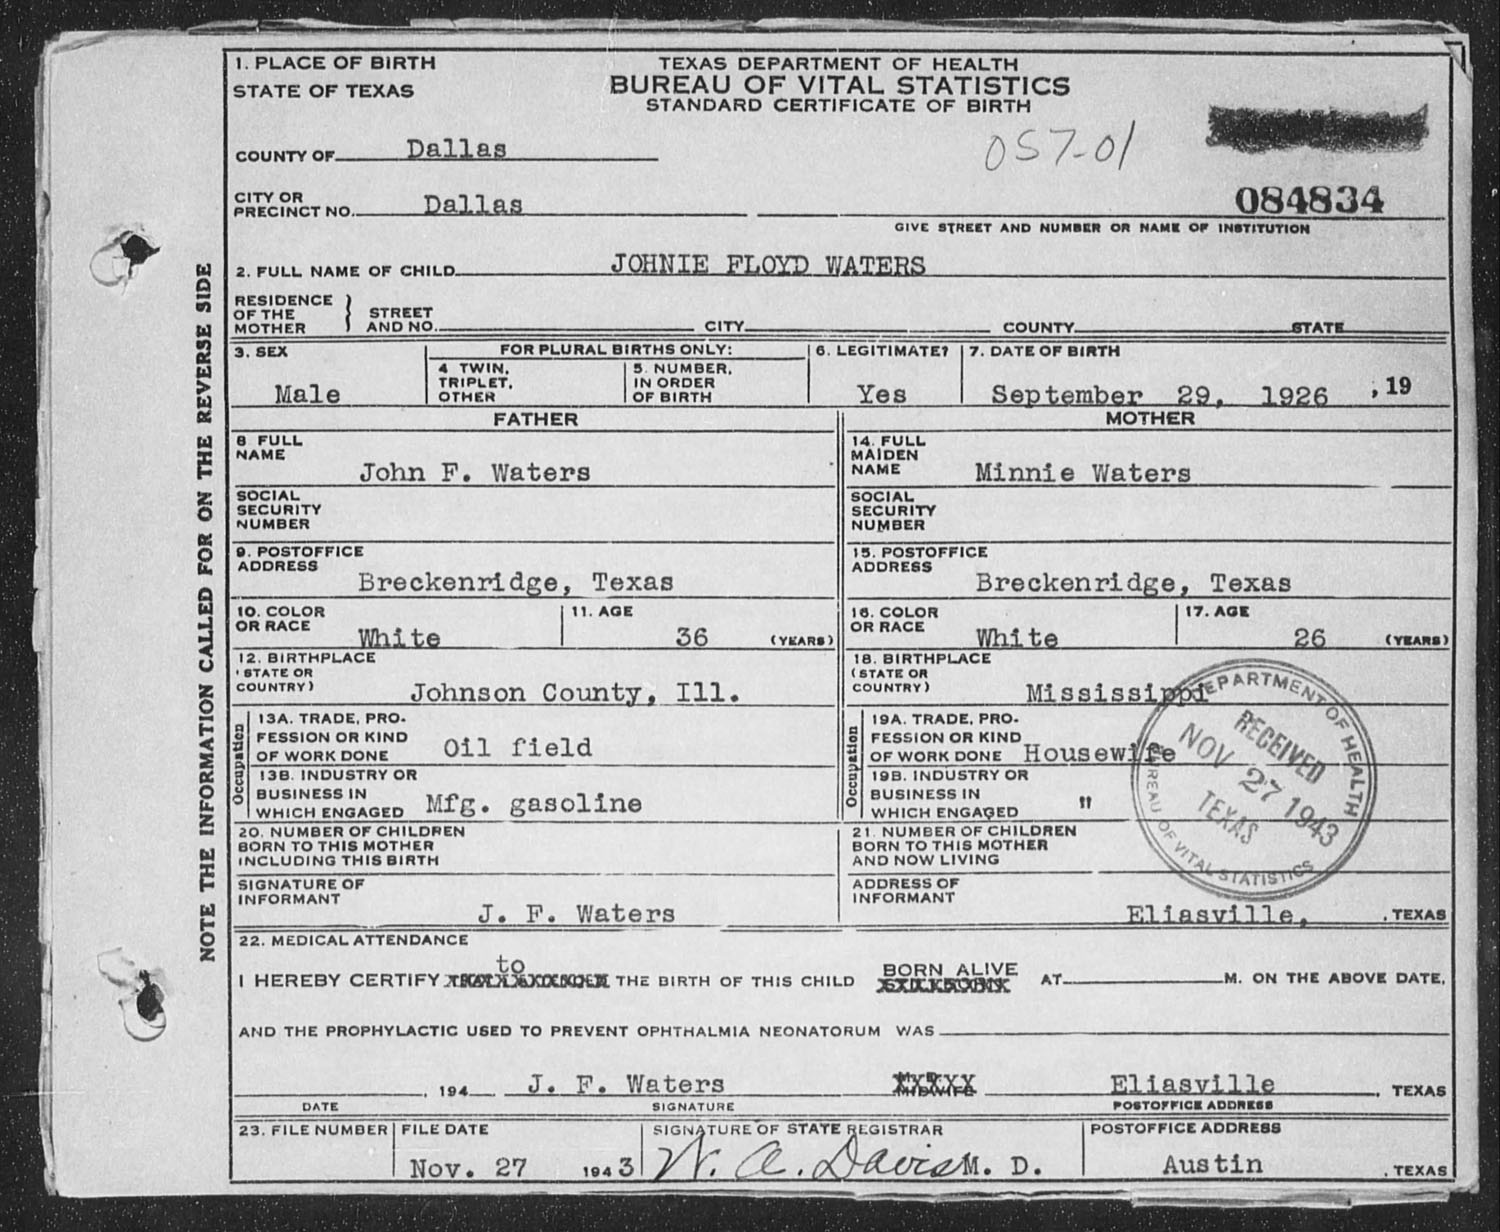 1. PLACE OF BIRTH
STATE OF TEXAS
TEXAS DEPARTMENT OF HEALTH
BUREAU OF VITAL STATISTICS
STANDARD CERTIFICATE OF BIRTH
057-01
COUNTY OF Dallas
CITY OR PRECINCT NO. Dallas
084834
GIVE STREET AND NUMBER OR NAME OF INSTITUTION
2. FULL NAME OF CHILD JOHNIE FLOYD WATERS
RESIDENCE OF THE MOTHER } STREET AND NO. CITY COUNTY STATE
3. SEX Male
FOR PLURAL BIRTHS ONLY:
4 TWIN, TRIPLET, OTHER
5. NUMBER, IN ORDER OF BIRTH
6. LEGITIMATE? Yes
7. DATE OF BIRTH September 29, 1926 , 19
FATHER
MOTHER
8 FULL NAME John F. Waters
14. FULL MAIDEN NAME Minnie Waters
SOCIAL SECURITY NUMBER
SOCIAL SECURITY NUMBER
9. POSTOFFICE ADDRESS Breckenridge, Texas
15. POSTOFFICE ADDRESS Breckenridge, Texas
10. COLOR OR RACE White
11. AGE 36 (YEARS)
16. COLOR OR RACE White
17. AGE 26 (YEARS)
12. BIRTHPLACE (STATE OR COUNTRY) Johnson County, Ill.
18. BIRTHPLACE (STATE OR COUNTRY) Mississippi
Occupation
13A. TRADE, PROFESSION OR KIND OF WORK DONE Oil field
13B. INDUSTRY OR BUSINESS IN WHICH ENGAGED Mfg. gasoline
Occupation
19A. TRADE, PROFESSION OR KIND OF WORK DONE Housewife
19B. INDUSTRY OR BUSINESS IN WHICH ENGAGED "
DEPARTMENT OF HEALTH
RECEIVED
NOV 27 1943
TEXAS
BUREAU OF VITAL STATISTICS
20. NUMBER OF CHILDREN BORN TO THIS MOTHER INCLUDING THIS BIRTH
21. NUMBER OF CHILDREN BORN TO THIS MOTHER AND NOW LIVING
SIGNATURE OF INFORMANT J. F. Waters
ADDRESS OF INFORMANT Eliasville, , TEXAS
22. MEDICAL ATTENDANCE
I HEREBY CERTIFY to THE BIRTH OF THIS CHILD BORN ALIVE AT M. ON THE ABOVE DATE,
AND THE PROPHYLACTIC USED TO PREVENT OPHTHALMIA NEONATORUM WAS
, 194 J. F. Waters Eliasville , TEXAS
DATE SIGNATURE POSTOFFICE ADDRESS
23. FILE NUMBER
FILE DATE Nov. 27 1943
SIGNATURE OF STATE REGISTRAR W. A. Davis M. D.
POSTOFFICE ADDRESS Austin , TEXAS
NOTE THE INFORMATION CALLED FOR ON THE REVERSE SIDE